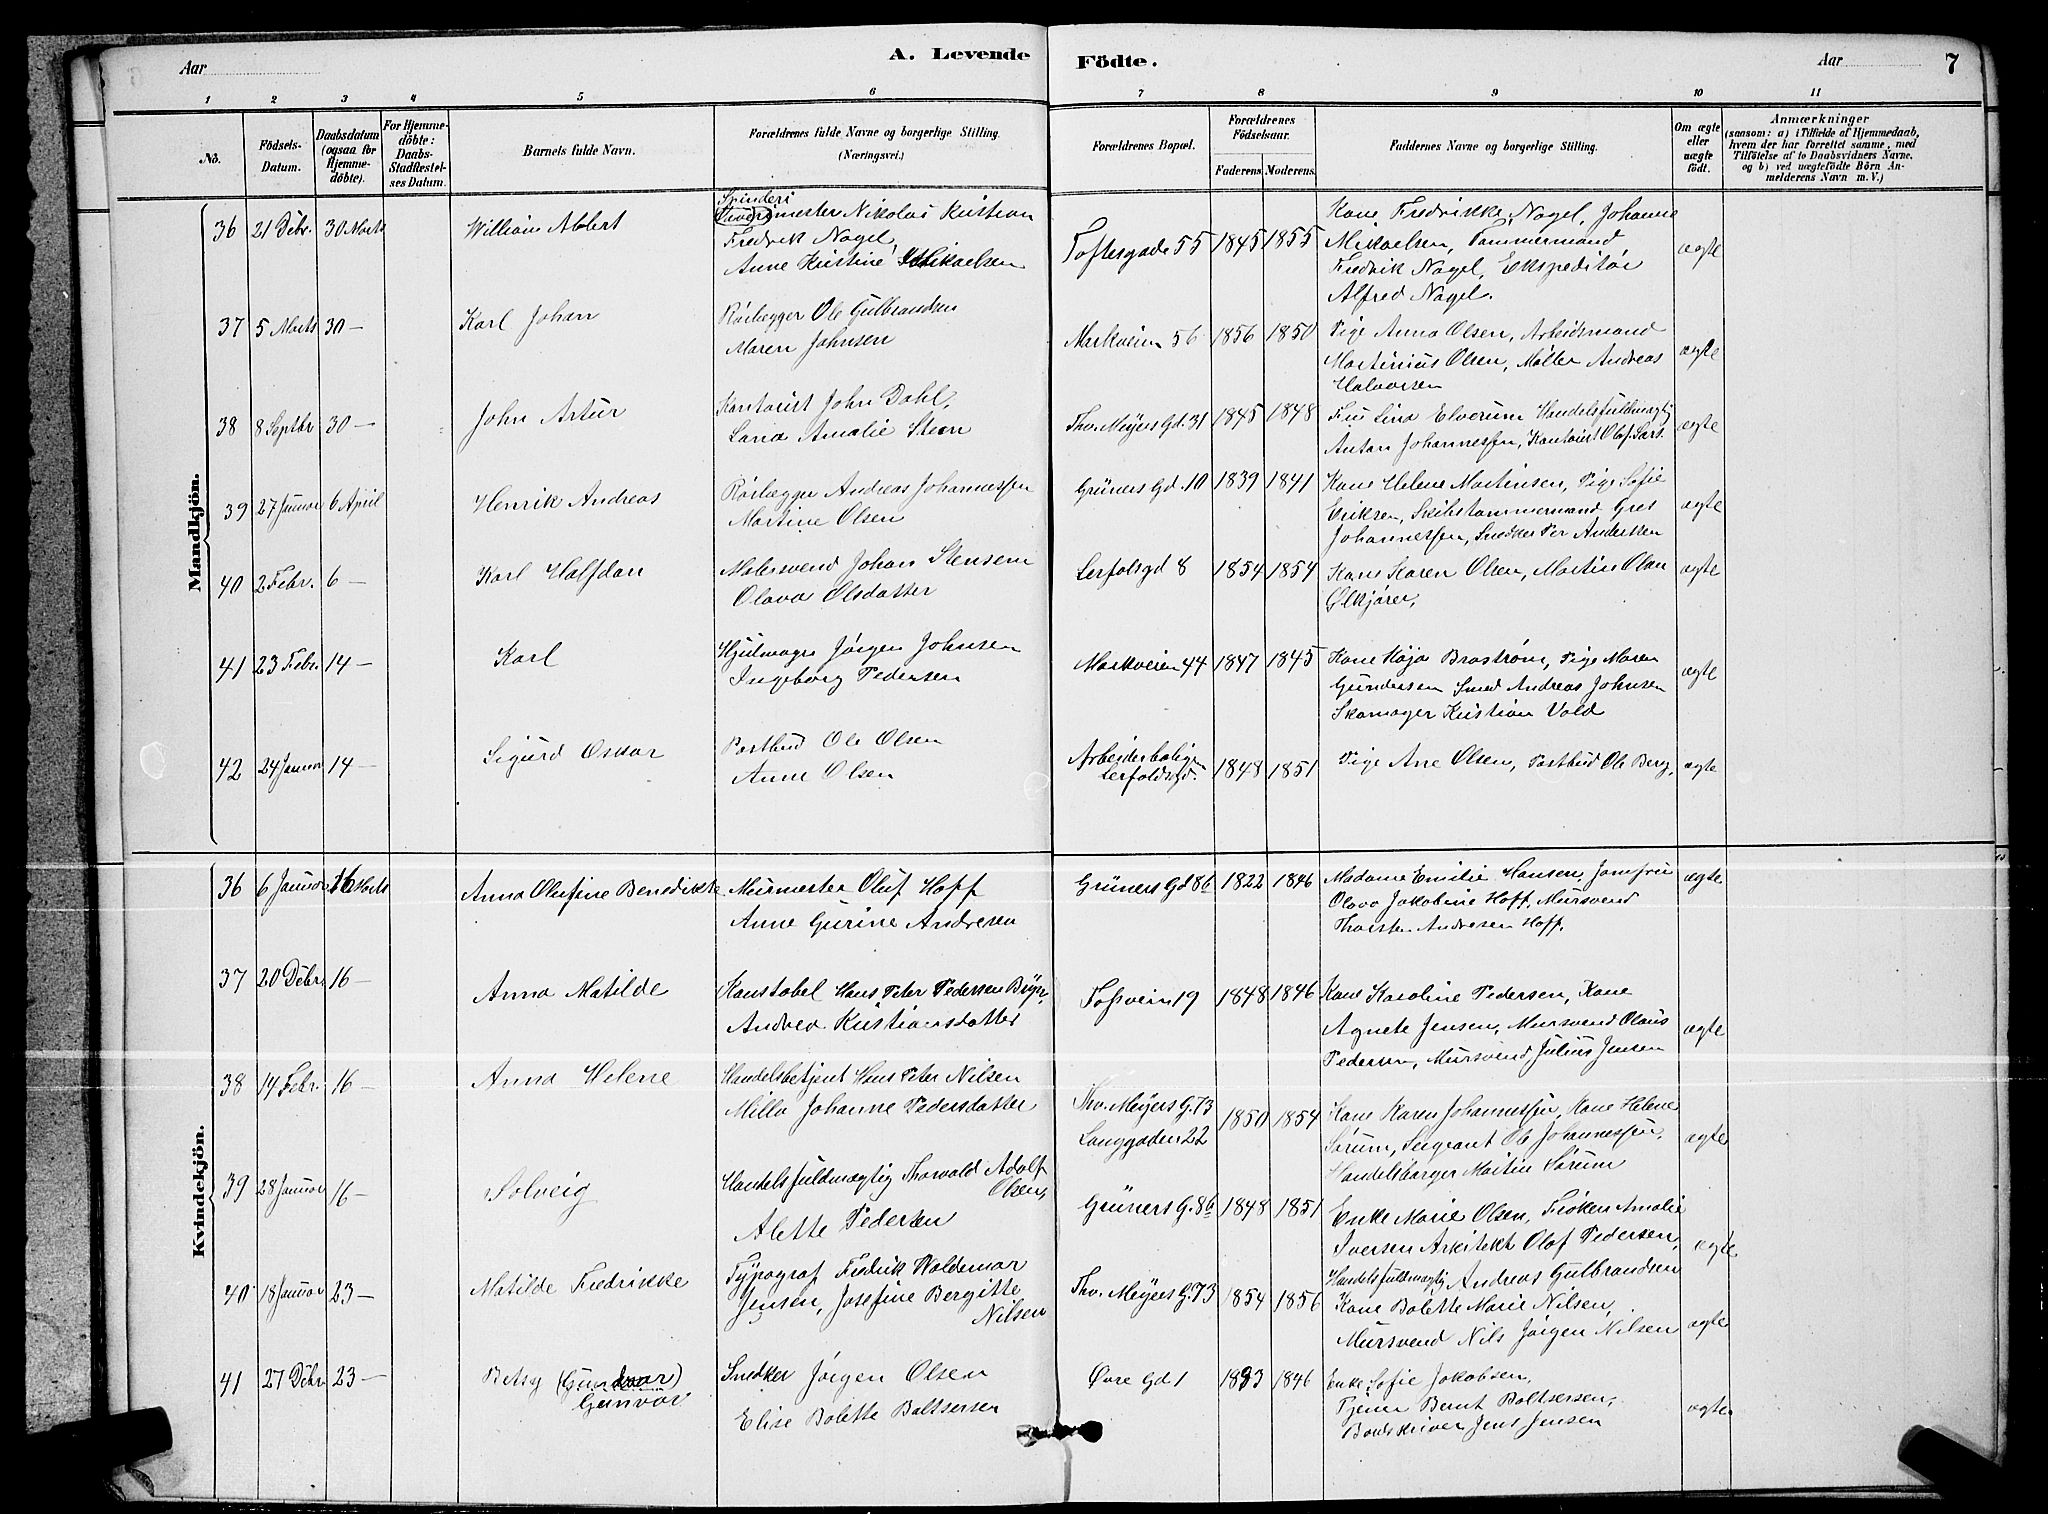 Aar
A. Levende
Födte.
Aar
7
1 2 3 4 5 6 7 8 9 10 11
No.
Födsels-
Datum.
Daabsdatum
(ogsaa for
Hjemme-
döbte).
For Hjemme-
döbte:
Daabs-
Stadfæstel-
ses Datum.
Barnets fulde Navn.
Forældrenes fulde Navne og borgerlige Stilling.
(Næringsvei.)
Forældrenes Bopæl.
Forældrenes
Födselsaar.
Faderens. Moderens.
Faddernes Navne og borgerlige Stilling.
Om ægte
eller
uægte
født.
Anmærkninger
(saasom: a) i Tilfælde af Hjemmedaab,
hvem der har forrettet samme, med
Tilföielse af to Daabsvidners Navne,
og b) ved uægtefödte Börn An-
melderens Navn m. V.)
Mandkjön.
36 21 Debr. 30 Marts William Albert
Spinderi
mester Nikolai Kristian
Fredrik Nagel,
Anne Kristine Mikaelsen
Toftesgade 55 1845 1855
Kone Fredrikke Nagel, Johanne
Mikaelsen, Tømmermand
Fredrik Nagel, Ekspeditør
Alfred Nagel.
ægte
37 5 Marts 30 — Karl Johan
Rørlægger Ole Gulbrandsen
Maren Johnsen
Markveien 56 1856 1850
Pige Anna Olsen, Arbeidsmand
Martinius Olsen, Møller Andreas
Halvorsen
ægte
38 8 Septbr 30 — John Artur
Kontorist John Dahl,
Lana Amalie Steen
Thv. Meyers Gd. 31 1845 1848
Fru Lina Elverum Handelsfuldmægtig
Anton Johannessen, Kontorist Olaf Sars.
ægte
39 27 Januar 6 April Henrik Andreas
Rørlægger Andreas Johannessen
Martine Olsen
Grüners Gd. 10 1839 1841
Kone Helene Martinsen, Pige Sofie
Eriksen, Skibstømmermand Gres
Johannessen, Snedker Per Andersen
ægte
40 2 Febr. 6 — Karl Halfdan
Malersvend Johan Stensen
Olava Olsdatter
Lerfalsgd 8 1854 1854
Kone Karen Olsen, Martin Olsen
Ølkjører,
ægte
41 23 Febr. 14 — Karl
Hjulmager Jørgen Johnsen
Ingeborg Pedersen
Markveien 44 1847 1845
Kone Kaja Brostrøm, Pige Maren
Gundersen Smed Andreas Johnsen
Skomager Kristian Vold
ægte
42 24 Januar 14 — Sigurd Oskar
Postbud Ole Olsen
Anne Olsen
Arbeiderboliger
Lerfoldsgd. 1848 1851
Pige Ane Olsen, Postbud Ole Berg,
ægte
Kvindekjön.
36 6 Januar 16 Marts Anna Olufine Benedikte
Murmester Oluf Hoff
Anne Gurine Andresen
Grüners Gd 8b 1822 1846
Madame Emilie Hansen, Jomfru
Olava Jakobine Hoff, Mursvend
Thorsten Andresen Hoff.
ægte
37 20 Debr. 16 — Anna Matilde
Konstabel Hans Peter Pedersen
Andrea Kristiansdatter
Fossvein 19 1848 1846
Kone Karoline Pedersen, Kone
Agnete Jensen, Mursvend Olaus
Pedersen, Mursvend Julius Jensen
ægte
38 14 Febr. 16 — Anna Helene
Handelsbetjent Hans Peter Nilsen
Milla Johanne Pedersdatter
Thv. Meyers G. 73
Langgaden 22 1850 1854
Kone Karen Johannessen, Kone Helene
Sørum, Sergeant Ole Johannessen,
Handelsborger Martin Sørum
ægte
39 28 Januar 16 — Solveig
Handelsfuldmægtig Thorvald Adolf
Olsen,
Alette Pedersen
Grüners G. 8b 1848 1851
Enke Marie Olsen, Frøken Amalie
Iversen Arkitekt Olof Pedersen,
Handelsfuldmægtig Andreas Gulbrandsen
ægte
40 18 Januar 23 — Matilde Fredrikke
Typograf Fredrik Waldemar
Jensen, Josefine Bergitte
Nilsen
Thv. Meyers G. 73 1854 1856
Kone Bolette Marie Nilsen,
Mursvend Nils Jørgen Nilsen
ægte
41 27 Debr 23 — Betsy (Gundvor)
Gunvor
Snedker Jørgen Olsen
Elise Bolette Baltsersen
Øvre Gd. 1 1846
Enke Sofie Jakobsen,
Tjener Bernt Baltsersen,
Jens Jensen
ægte